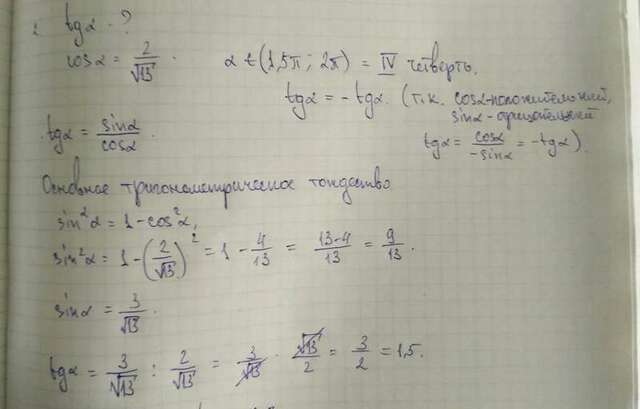 tgα - ?
cosα = 2/√13. α t (1,5π; 2π) = IV четверть.
tgα = -tgα. (т.к. cosα-положительный,
sinα-отрицательный
tgα = sinα/cosα. tgα = cosα/-sinα = -tgα).
Основное тригонометрическое тождество
sin²α = 1 - cos²α,
sin²α = 1 - (2/√13)² = 1 - 4/13 = 13-4/13 = 9/13.
sinα = 3/√13.
tgα = 3/√13 : 2/√13 = 3/√13 · √13/2 = 3/2 = 1,5.